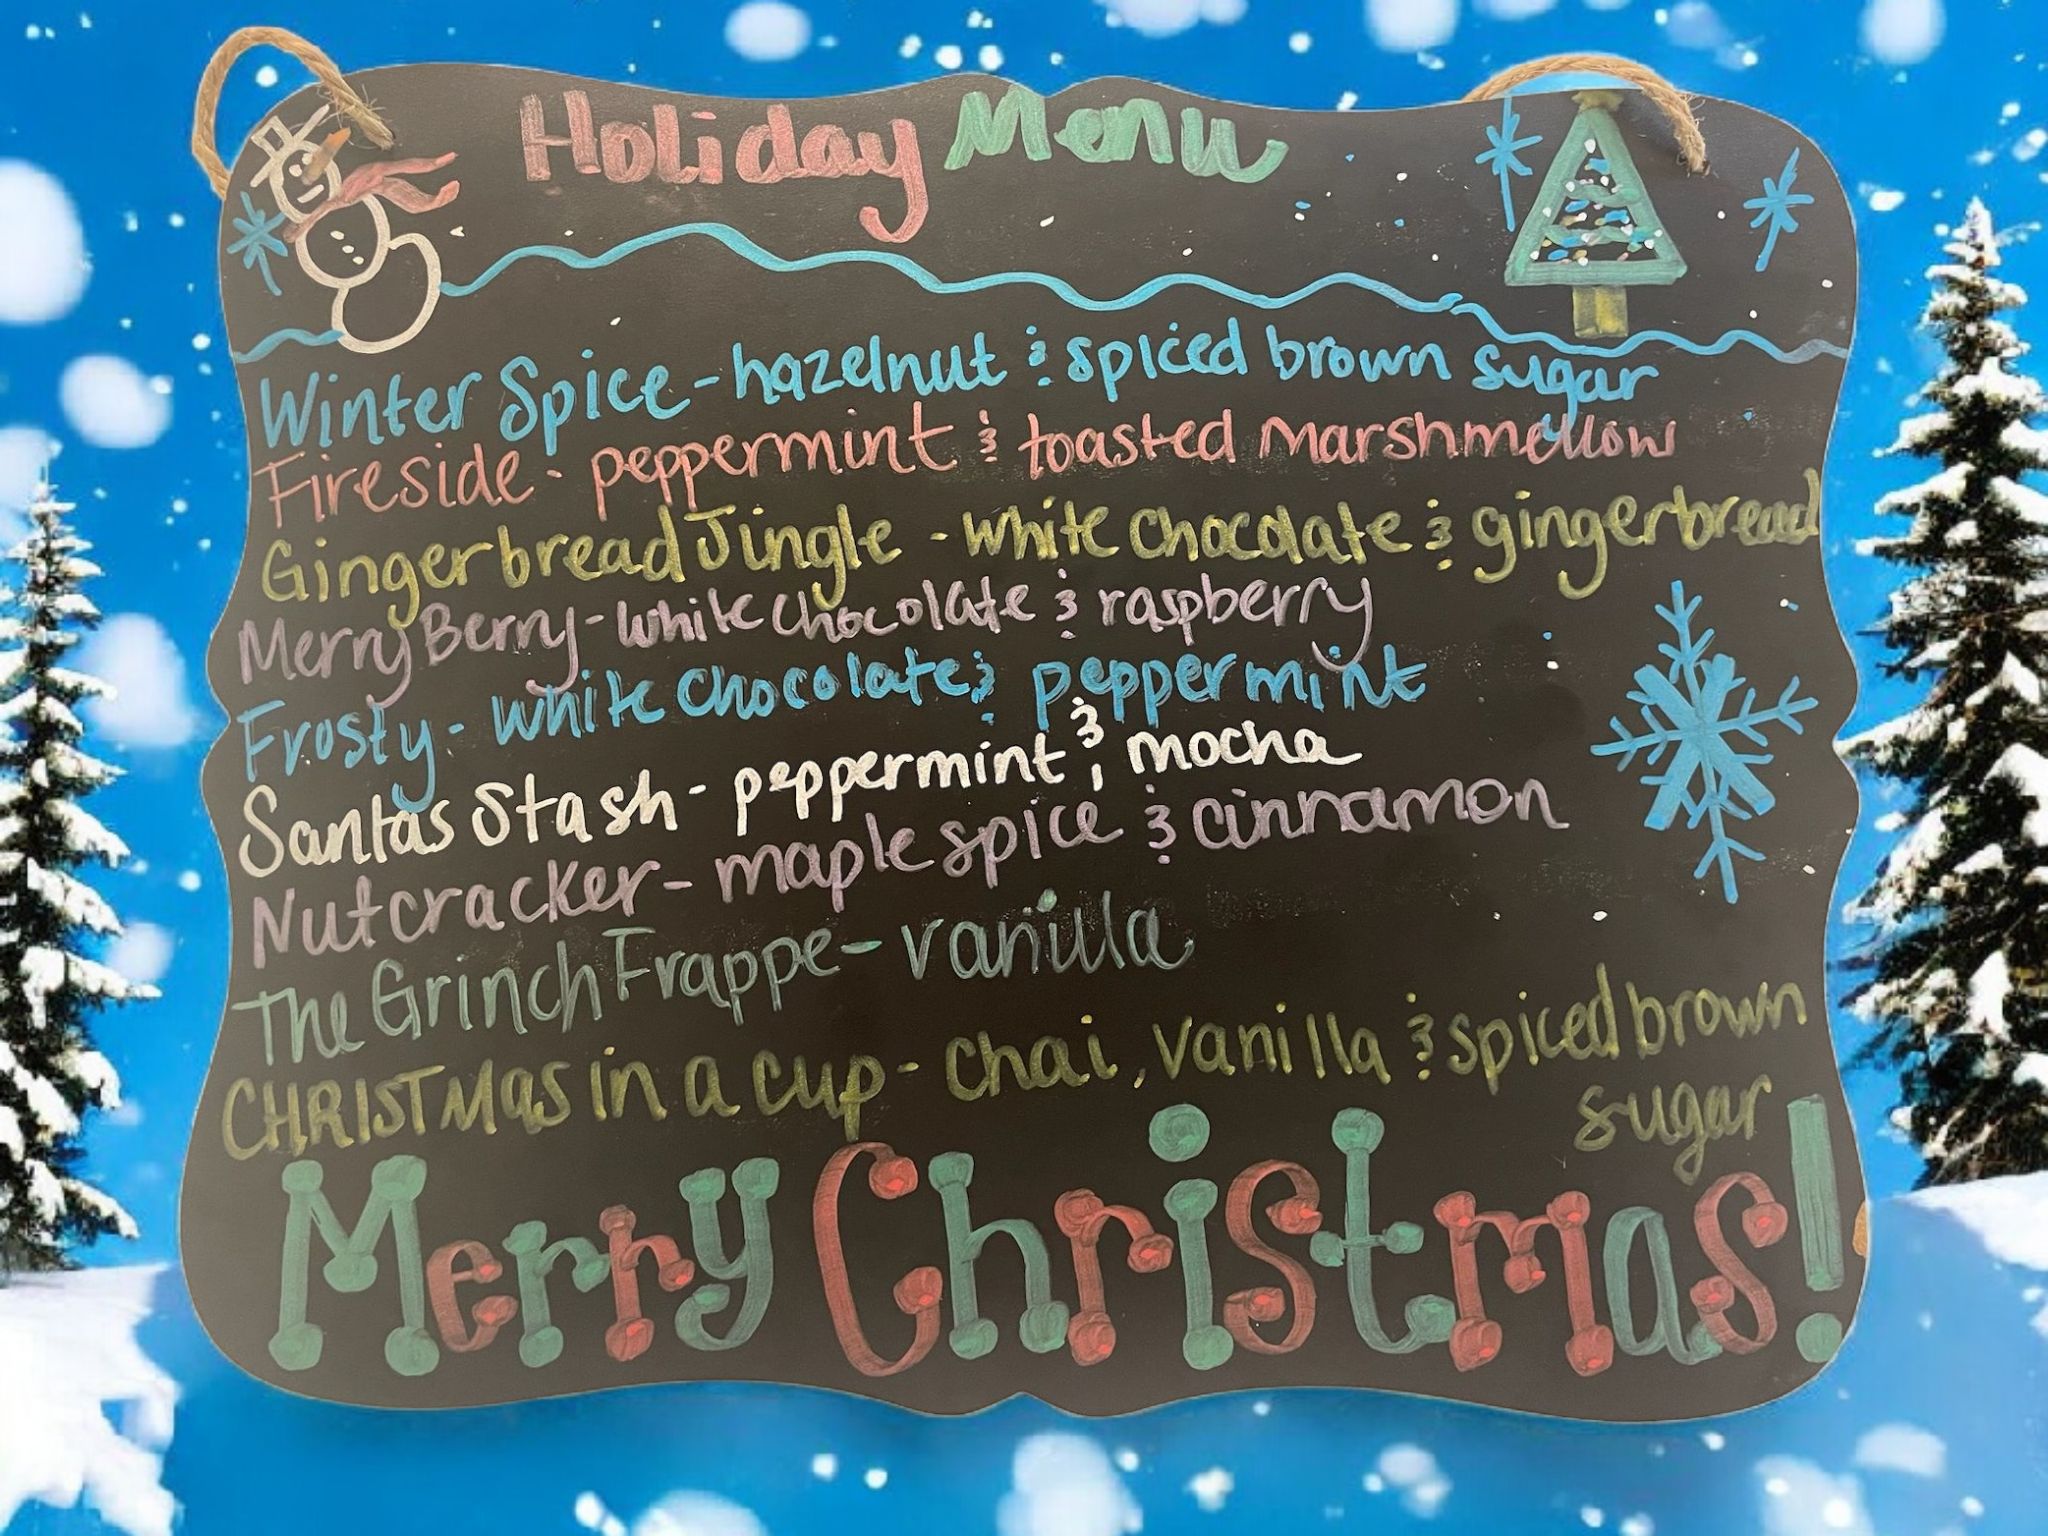 Holiday Menu
Winter Spice - hazelnut & spiced brown sugar
Fireside - peppermint & toasted marshmellow
Gingerbread Jingle - white chocolate & gingerbread
Merry Berry - white chocolate & raspberry
Frosty - white chocolate & peppermint
Santas Stash - peppermint & mocha
Nutcracker - maple spice & cinnamon
The Grinch Frappe - vanilla
CHRISTMAS in a cup - chai, vanilla & spiced brown
sugar
Merry Christmas!